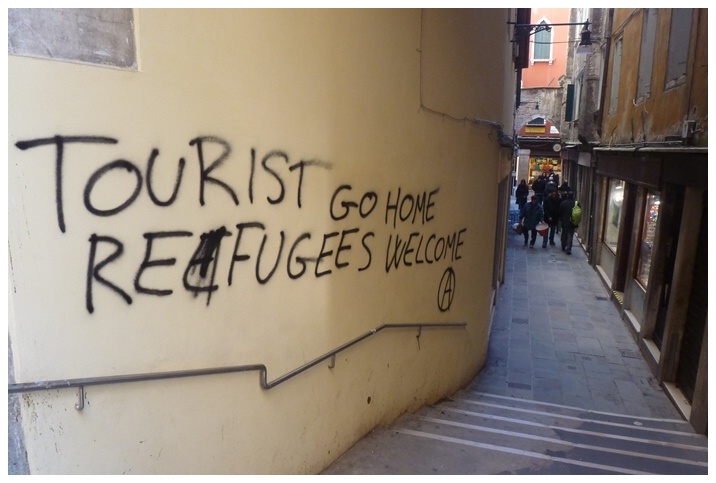 TOURIST GO HOME
REFUGEES WELCOME
A